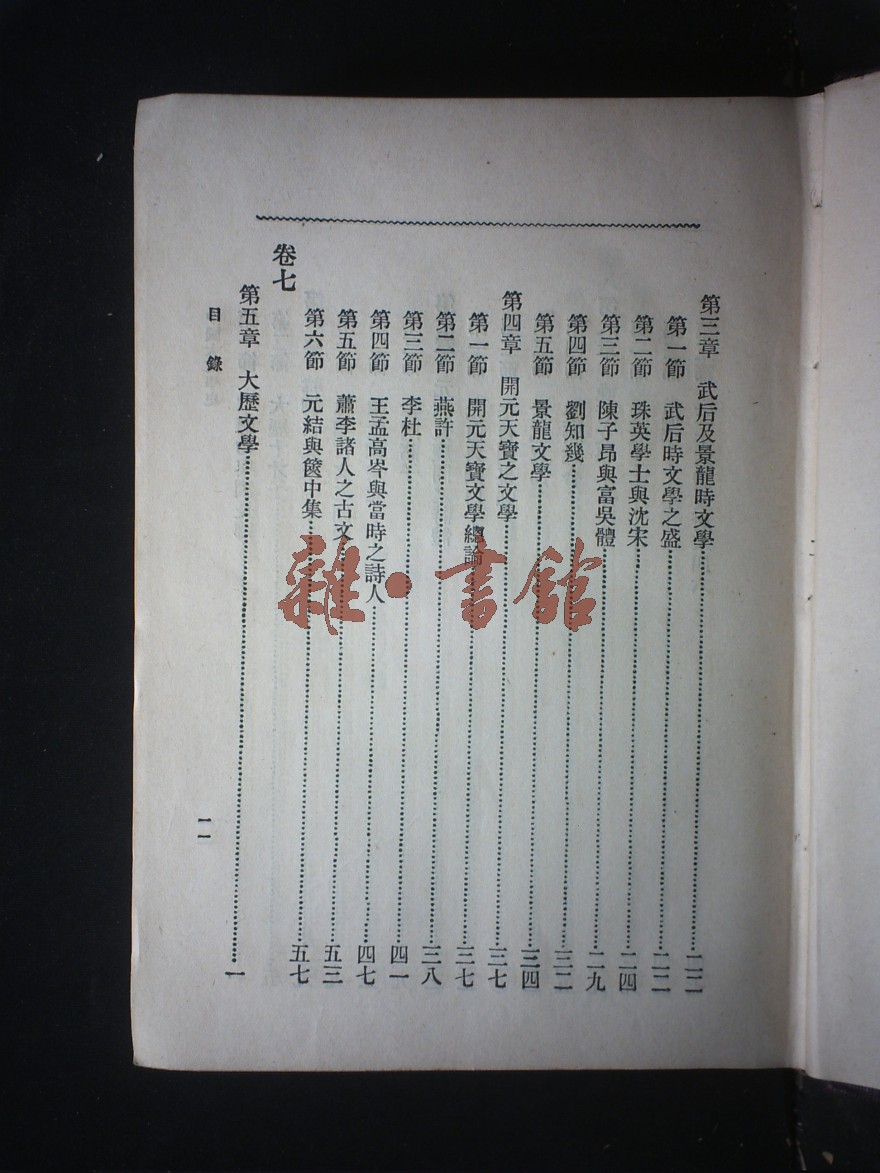 第三章　武后及景龍時文學……二二
第一節　武后時文學之盛……二二
第二節　珠英學士與沈宋……二四
第三節　陳子昂與富吳體……二九
第四節　劉知幾……三二
第五節　景龍文學……三四
第四章　開元天寶之文學……三七
第一節　開元天寶文學總論……三七
第二節　燕許……三八
第三節　李杜……四一
第四節　王孟高岑與當時之詩人……四七
第五節　蕭李諸人之古文……五三
第六節　元結與篋中集……五七
卷七
第五章　大歷文學……一
目錄
一一
雜·書館